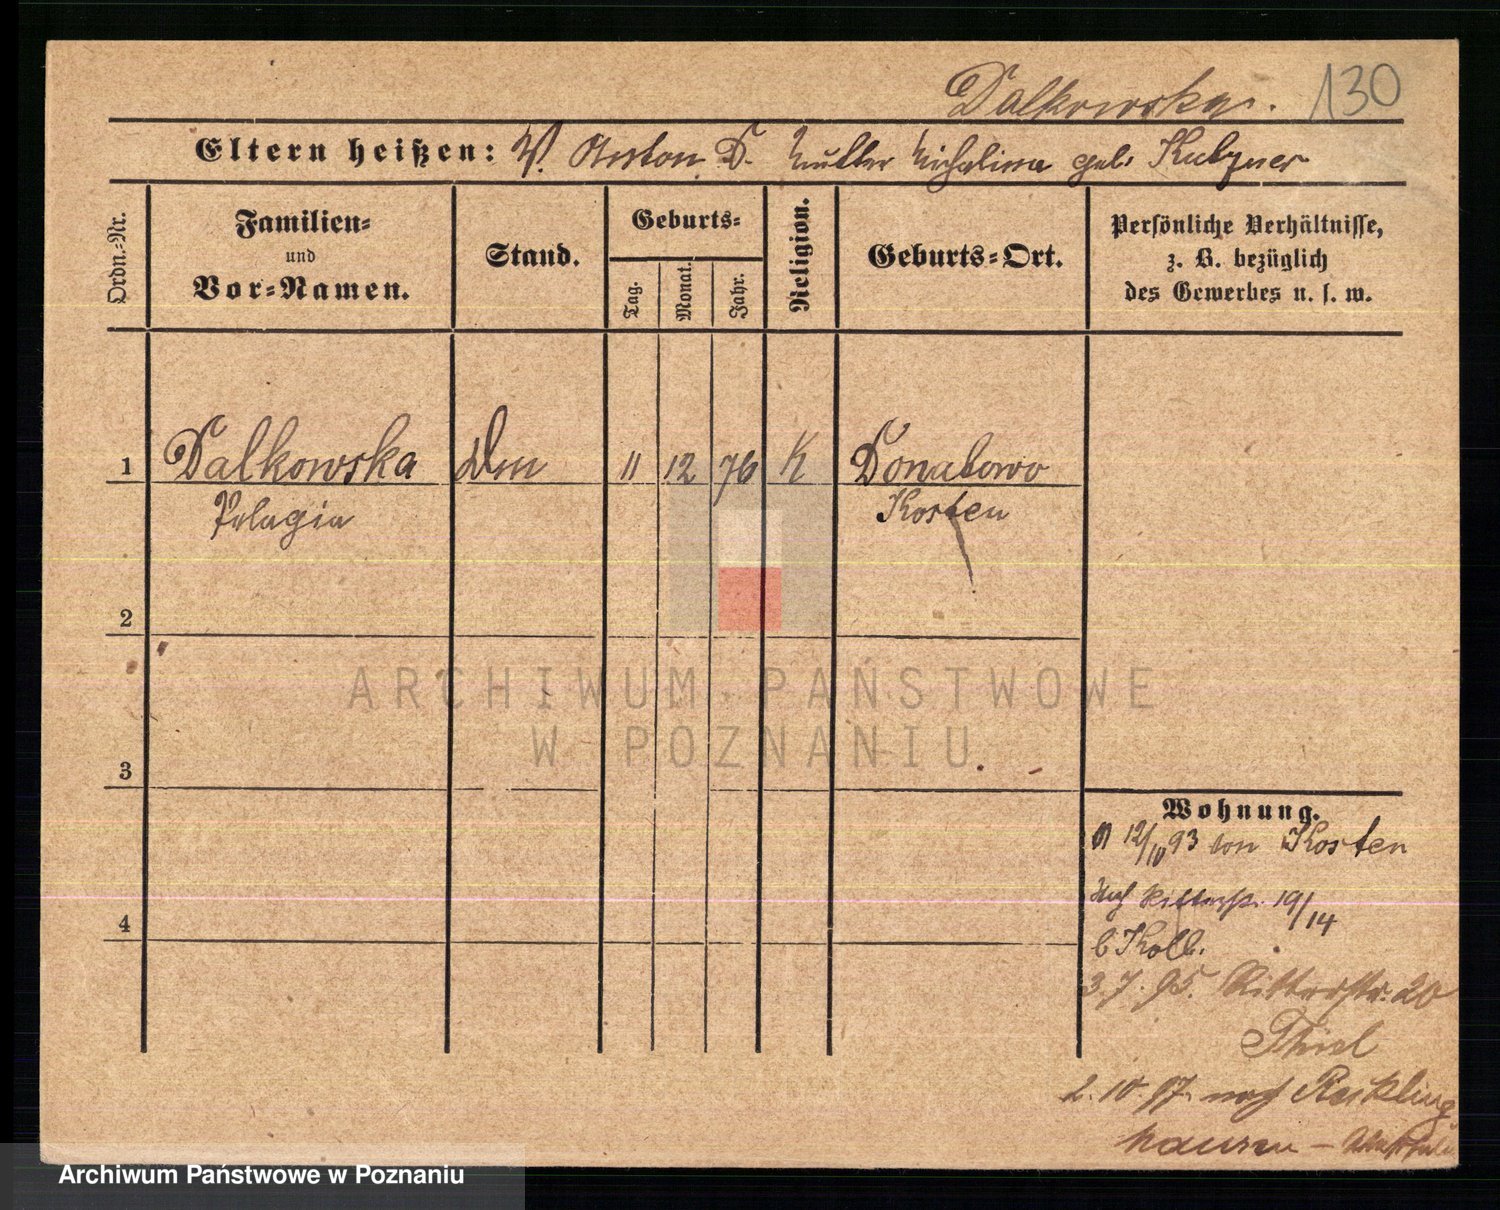 Dalkowska. 130
Eltern heißen: V. Anton D. Mutter Michalina geb. Kutzner
Ordn.-Nr.
Familien-
und
Vor-Namen.
Stand.
Geburts-
Tag. Monat. Jahr.
Religion.
Geburts-Ort.
Persönliche Verhältnisse,
z. B. bezüglich
des Gewerbes u. s. w.
1 Dalkowska 11 12 76 K Donatowo
Pelagia Kosten
2
3
4
Wohnung.
12/10 93 von Kosten
Ritterstr. 19/14
b Kolb.
3.7.95. Ritterstr. 20
Thiel
2.10.97. nach Reckling
hausen –
ARCHIWUM PAŃSTWOWE
W POZNANIU
Archiwum Państwowe w Poznaniu